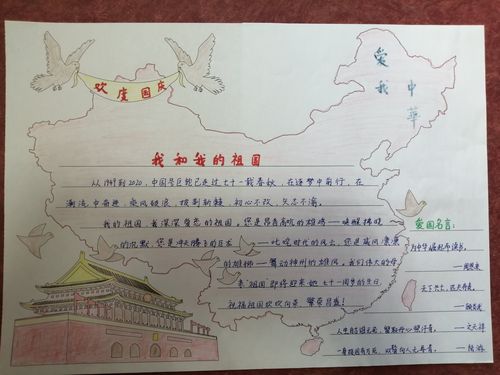 欢度国庆
爱我
中华
我和我的祖国
从1949到2020，中国号巨轮已走过七十一载春秋，在逐梦中前行，在
激流中奋进，乘风破浪，披荆斩棘，初心不改，矢志不渝。
我的祖国，我深深爱恋的祖国。您是昂首高吭的雄鸡——唤醒拂晓
的沉默，您是冲天腾飞的巨龙——叱咤时代的风云，您是威风凛凛
的雄狮——舞动神州的雄风。我们伟大的母
亲"祖国"即将迎来她七十一周岁的生日
祝福祖国欣欣向荣 繁荣昌盛！
爱国名言：
为中华崛起而读书。
——周恩来
天下兴亡，匹夫有责。
——顾炎武
人生自古谁无死，留取丹心照汗青。
——文天祥
一身报国有万死，双鬓向人无再青。
——陆游